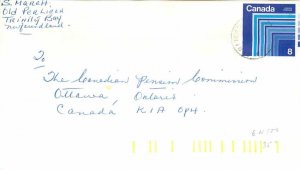 S. Marsh.
Old Perlican
Trinity Bay
Newfoundland.
Canada
8
To
The Canadian Pension Commission
Ottawa, Ontario
Canada K1A 0P4.